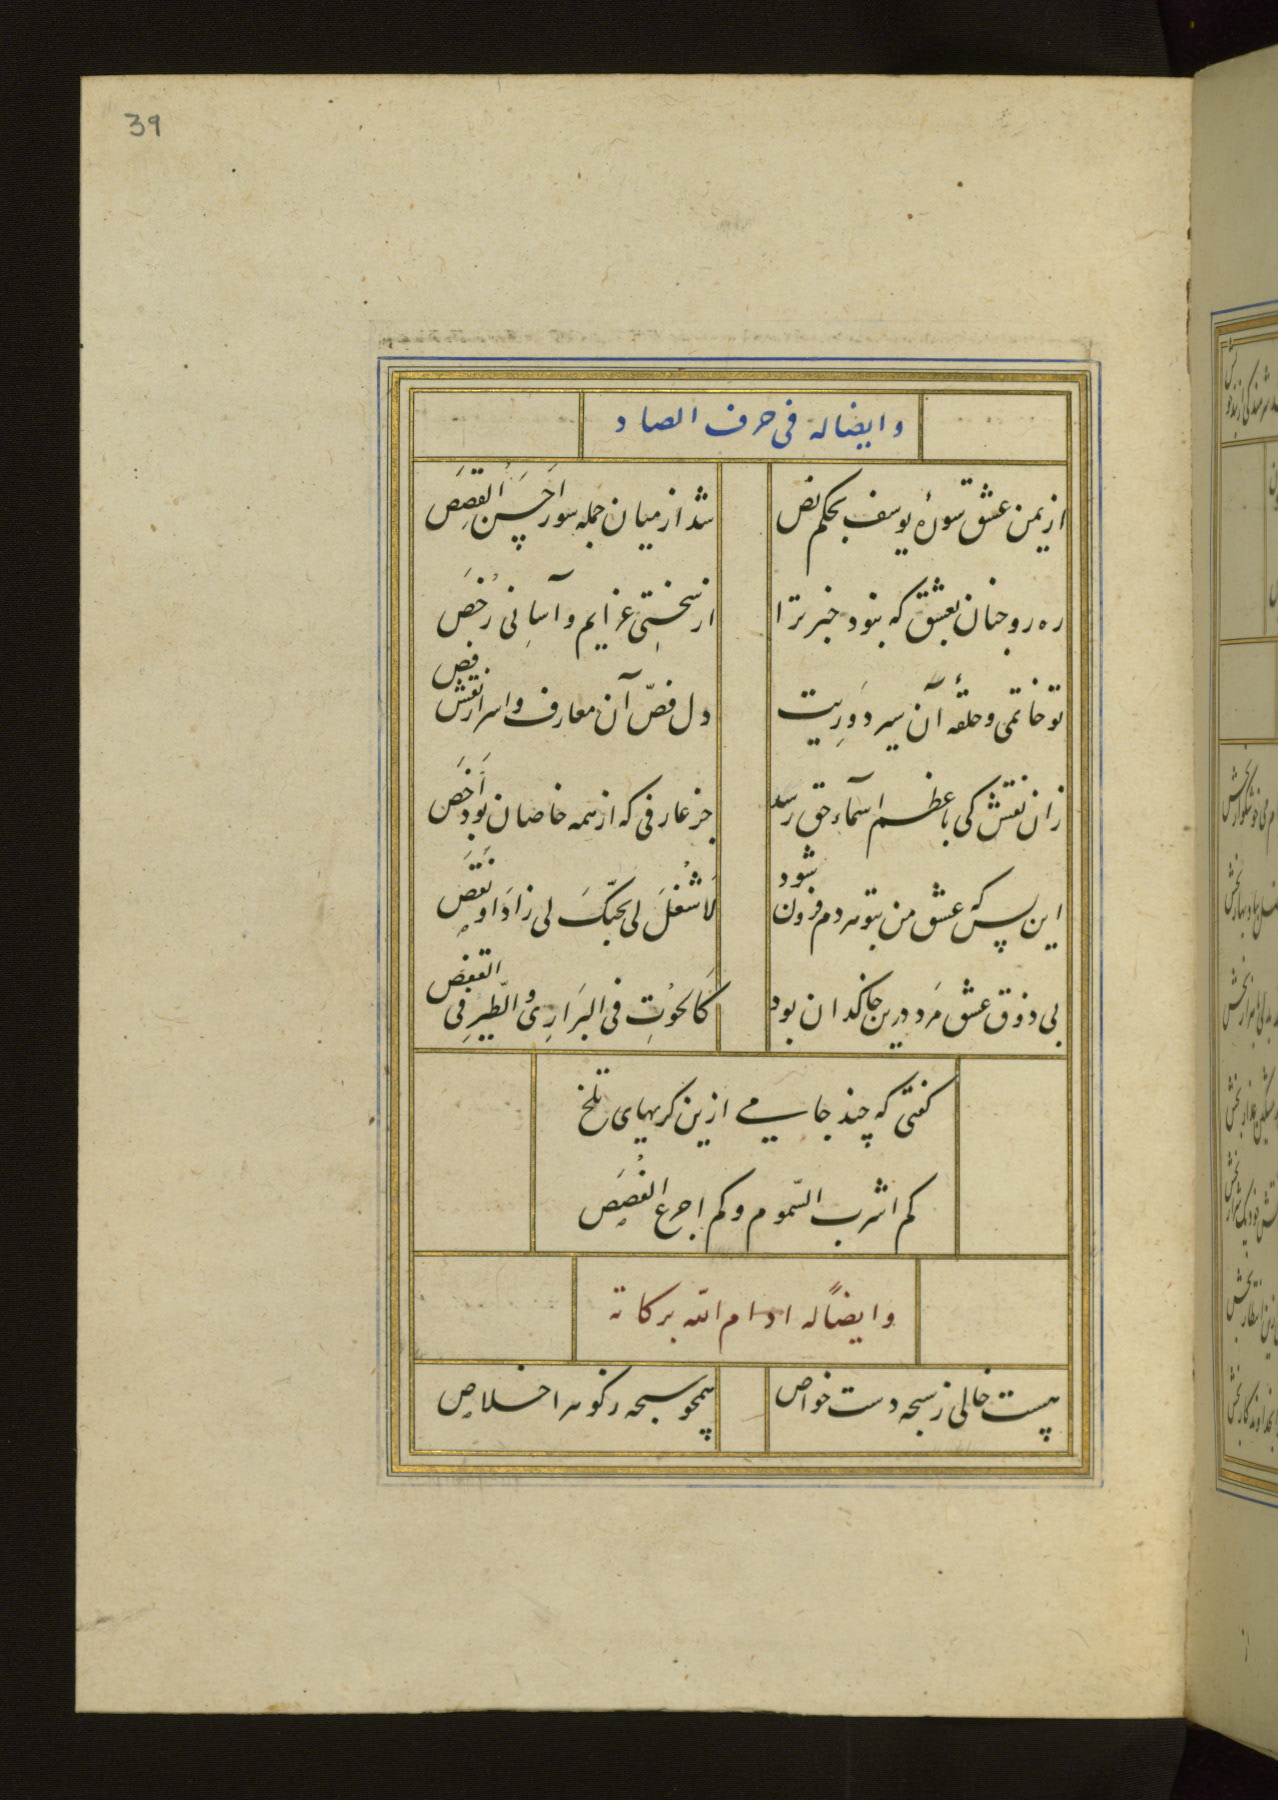 39
وایضاله فی حرف الصاد
از یمن عشق سورهٔ یوسف بحکم نص
شد از میان جمله سور اَحسَنُ القَصَص
ره رو چنان بعشق که نبود خبر ترا
از سختی عزایم و آسانی رُخَص
تو خاتمی و حلقهٔ آن سیر دَورِیت
دل فصّ آن معارف و اسرار نقش فص
زان نقش کی باعظم اسمآء حق رسد
جز عارفی که از همه خاصان بود اَخَص
این بس که عشق من بتو هر دم فزون شود
لَا شُغلَ لی بحبّکَ لی زادَ او نَقَص
بی ذوق عشق مرد درین خاکدان بود
کَالحُوتِ فی البَرَارِی و الطّیرِ فی القفص
گفتی که چند جامی ازین گریهای تلخ
کم اشرب السّموم و کم اجرع الغُصَص
وایضاً له ادام الله برکاته
نیست خالی ز سبحه دست خواص
همچو سبحه ز گوهر اخلاص